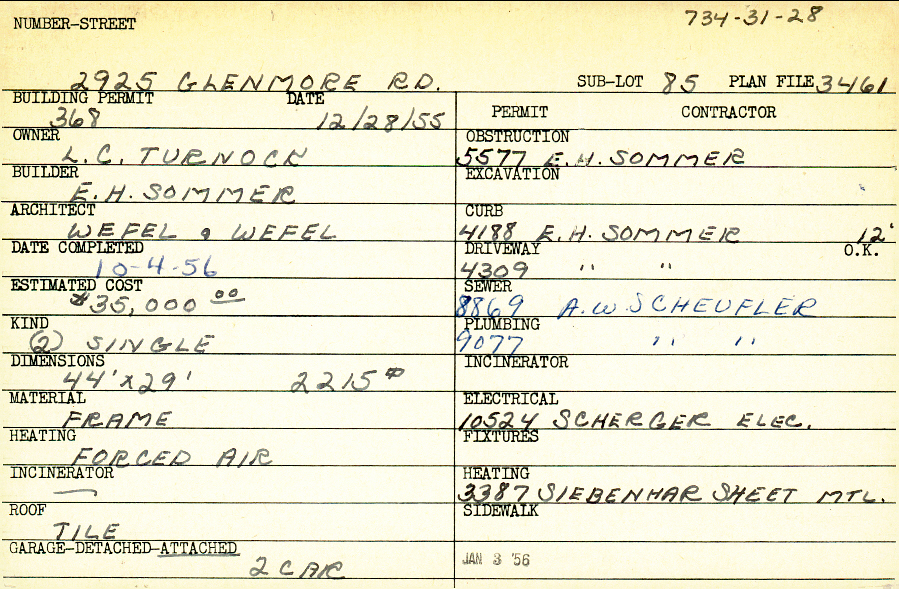 734-31-28
NUMBER-STREET
2925 GLENMORE RD.
SUB-LOT 85 PLAN FILE 3461
BUILDING PERMIT DATE
368 12/28/55
OWNER
L.C. TURNOCK
BUILDER
E.H. SOMMER
ARCHITECT
WEFEL & WEFEL
DATE COMPLETED
10-4-56
ESTIMATED COST
$35,000 00
KIND
(2) SINGLE
DIMENSIONS
44' x 29' 2215 #
MATERIAL
FRAME
HEATING
FORCED AIR
INCINERATOR
—
ROOF
TILE
GARAGE-DETACHED-ATTACHED
2 CAR
PERMIT CONTRACTOR
OBSTRUCTION
5577 E.H. SOMMER
EXCAVATION
CURB
4188 E.H. SOMMER 12'
DRIVEWAY O.K.
4309 " "
SEWER
8869 A.W. SCHEUFLER
PLUMBING
9077 " "
INCINERATOR
ELECTRICAL
10524 SCHERGER ELEC.
FIXTURES
HEATING
3387 SIEBENHAR SHEET MTL.
SIDEWALK
JAN 3 '56